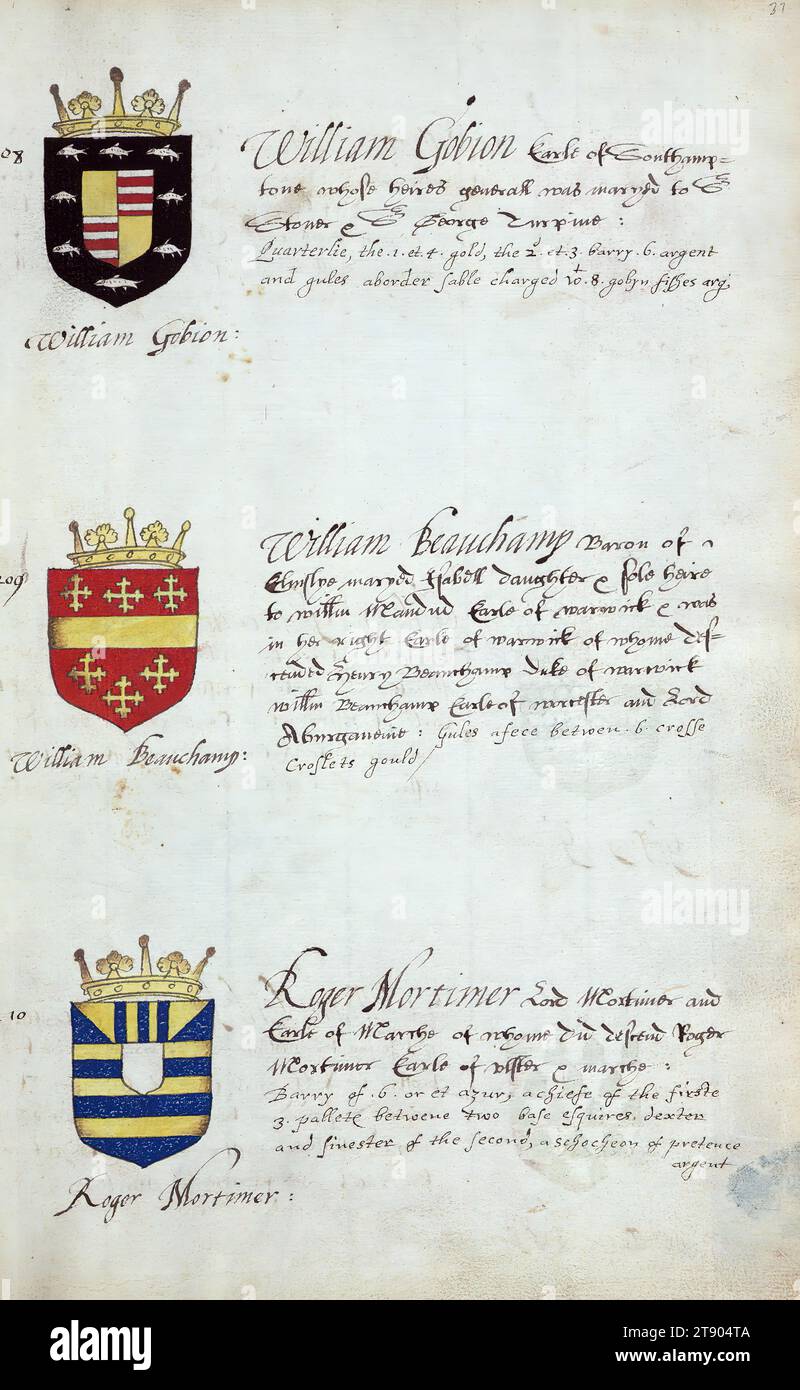 37
08
William Gobion Earle of Southamp=
tone whose heires generall was maryed to S
Stoner & S George Turpine :
Quarterlie, the .1. et .4. gold, the 2. et .3. barry .6. argent
and gules aborder sable charged wt .8. gobyn fisshes arg,
William Gobion :
209
William Beauchamp Baron of
Elmslye maryed Isabell daughter & sole heire
to willm Maudud Earle of warwick & was
in her right Earle of warwick of whome des=
cended Henry Beauchamp Duke of warwick
willm Beauchamp Earle of worcester and Lord
Aburgaveine : Gules afece betwen .6. crosse
Croslets gould /
William Beauchamp :
10
Roger Mortimer Lord Mortimer and
Earle of Marche of whome did descend Roger
Mortimor Earle of ulster & marche :
Barry of .6. or et azur, a chiefe of the firste
3. pallete betwene two base esquires, dexter
and sinester of the second, a schocheon of pretence
argent
Roger Mortimer :
alamy
alamy
Image ID: 2T904TA
www.alamy.com